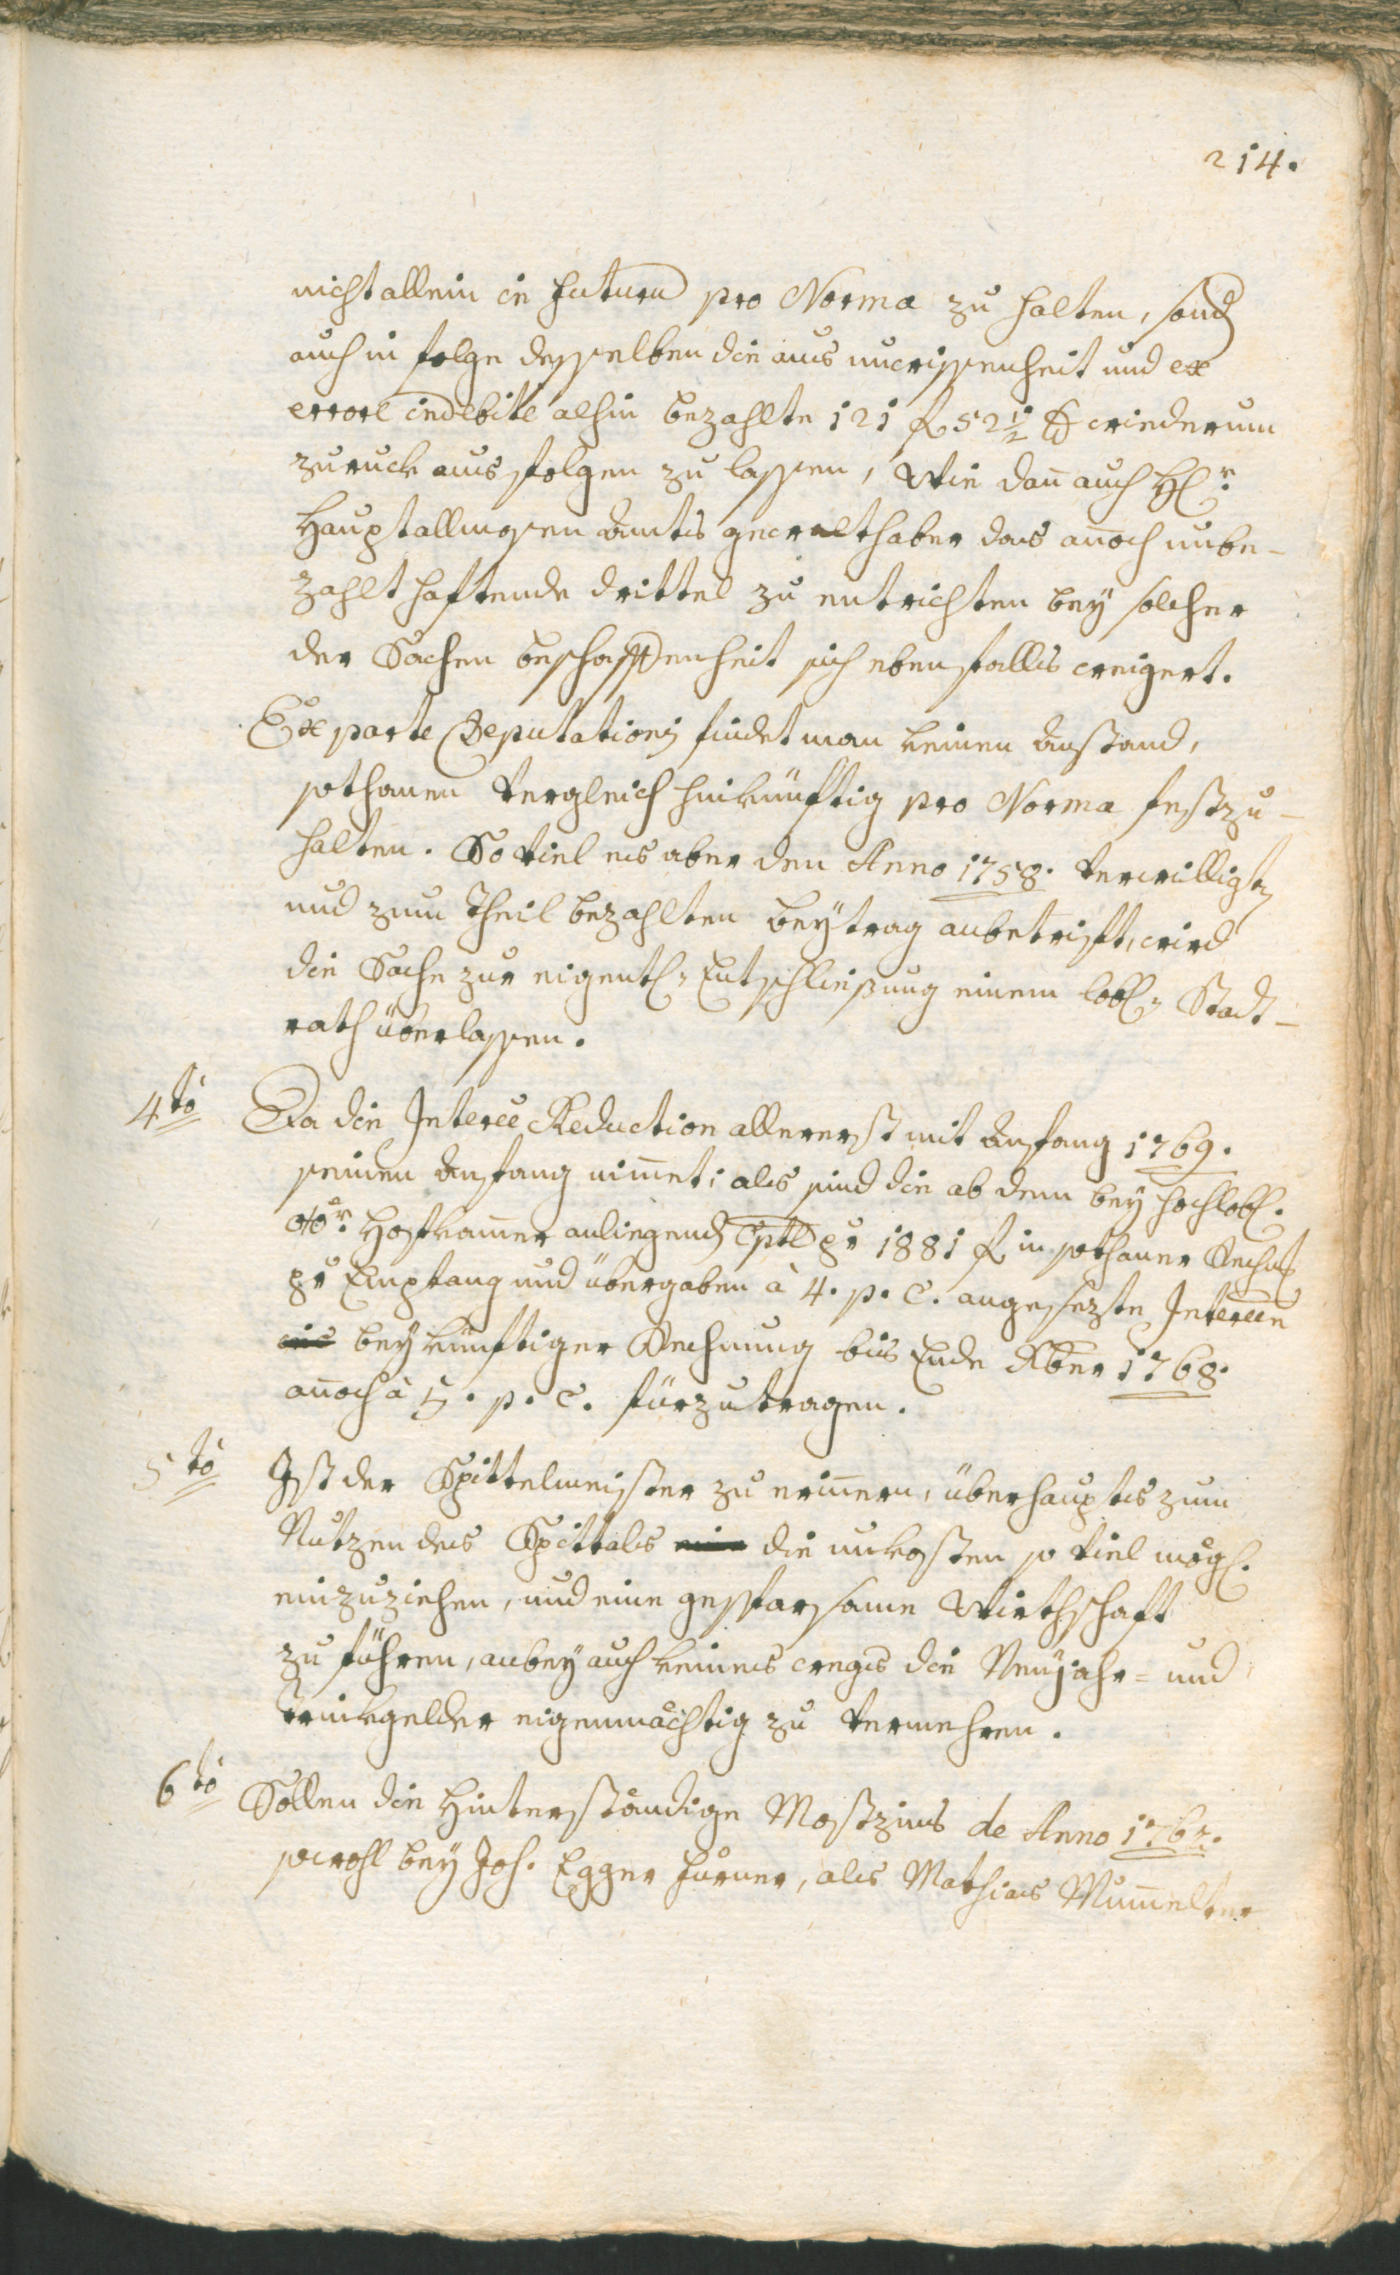 214.
nicht allein in futuru pro Norma zu halten, sond
auch in folge desselben die aus unwissenheit und ex
errore indebite alhin bezahlte 121 f 52 1/2 x wiederum
zuruck ausfolgen zu lassen, wie dañ auch H:r
Hauptallmosen Ambts gewalthaber das añoch unbe-
zahlt haftende drittel zu entrichten bey solcher
der Sachen beschaffenheit sich ebenfalls weigert.
Ex parte Deputationis findet man keinen Anstand,
sothanen Vergleich hinkünftig pro Norma festzu-
halten. So viel es aber den Anno 1758. verwilligten
und zum Theil bezahlten beytrag anbetrift, wird
die Sache zur eigentl: Entschließung einem löbl: Stadt-
rath überlassen.
4to Da die Interee Reduction allererst mit Anfang 1769.
seinen Anfang nim̃et; als sind die ab dem bey hochlöbl.
OÖ:r Hofkam̃er anliegend Cptl pr 1881 f in sothaner Rechng
pr Empfang und übergaben à 4. p. C. angesezte Intereen
bey künftiger Rechnung bis Ende Xber 1768.
añoch à 5. p. C. fürzutragen.
5to Ist der Spittelmeister zu eriñern, überhaupts zum
Nutzen des Spittals die unkosten so viel mögl.
einzuziehen, und eine gesparsame Wirthschaft
zu führen, anbey auch keines wegs die Neujahr- und
trinkgelder eigenmächtig zu vermehren.
6to Sollen die Hinterständige Mostzins de Anno 1767.
sowohl bey Joh. Egger Hurner, als Mathias Mum̃elter